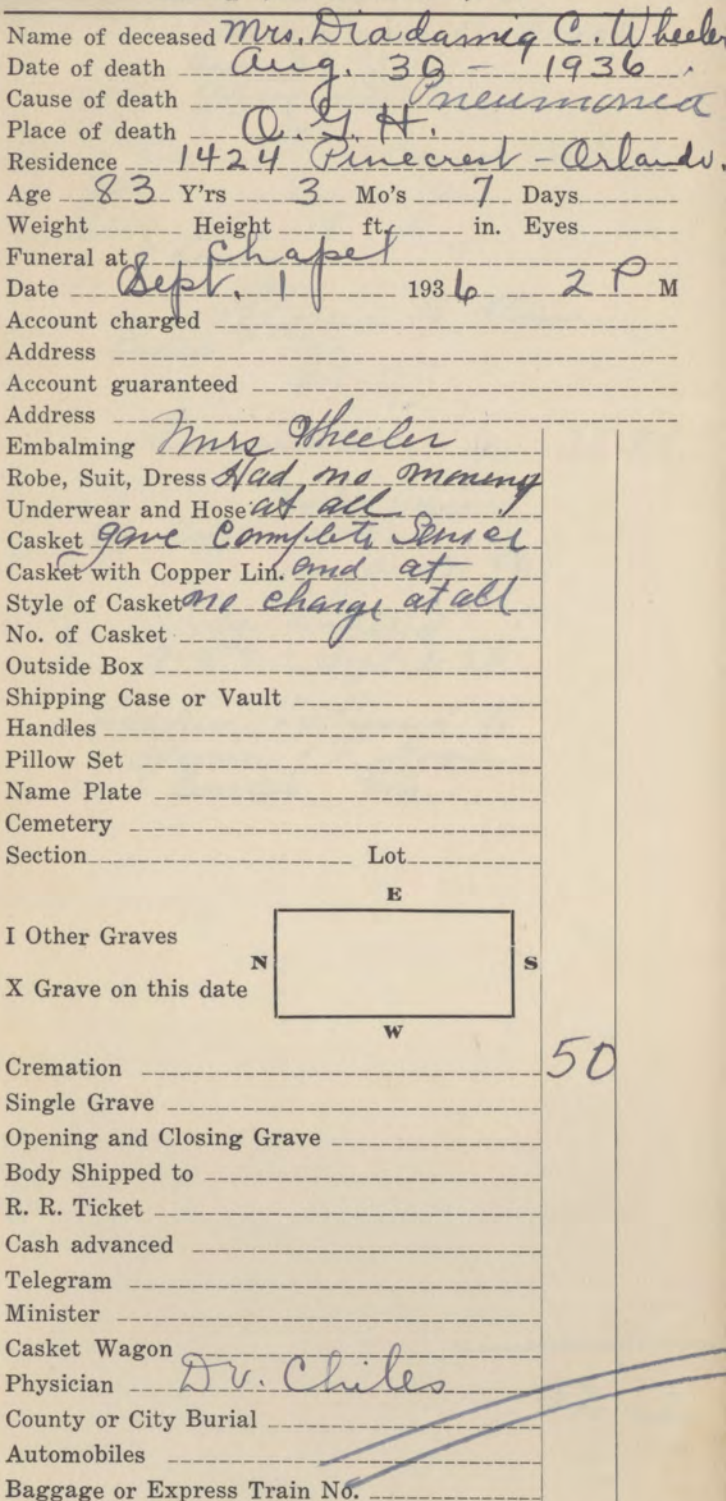 Name of deceased Mrs. Diadamia C. Wheeler
Date of death Aug. 30 - 1936.
Cause of death Pneumonia
Place of death O. G. H.
Residence 1424 Pinecrest - Orlando.
Age 83 Y'rs 3 Mo's 7 Days
Weight Height ft. in. Eyes
Funeral at Chapel
Date Sept. 1 1936 2 P M
Account charged
Address
Account guaranteed
Address
Embalming Mrs Wheeler
Robe, Suit, Dress Had no money
Underwear and Hose at all
Casket gave Complete Service
Casket with Copper Lin. and at
Style of Casket no charge at all
No. of Casket
Outside Box
Shipping Case or Vault
Handles
Pillow Set
Name Plate
Cemetery
Section Lot
E
I Other Graves
N S
X Grave on this date
W
Cremation 50
Single Grave
Opening and Closing Grave
Body Shipped to
R. R. Ticket
Cash advanced
Telegram
Minister
Casket Wagon
Physician Dr. Chiles
County or City Burial
Automobiles
Baggage or Express Train No.